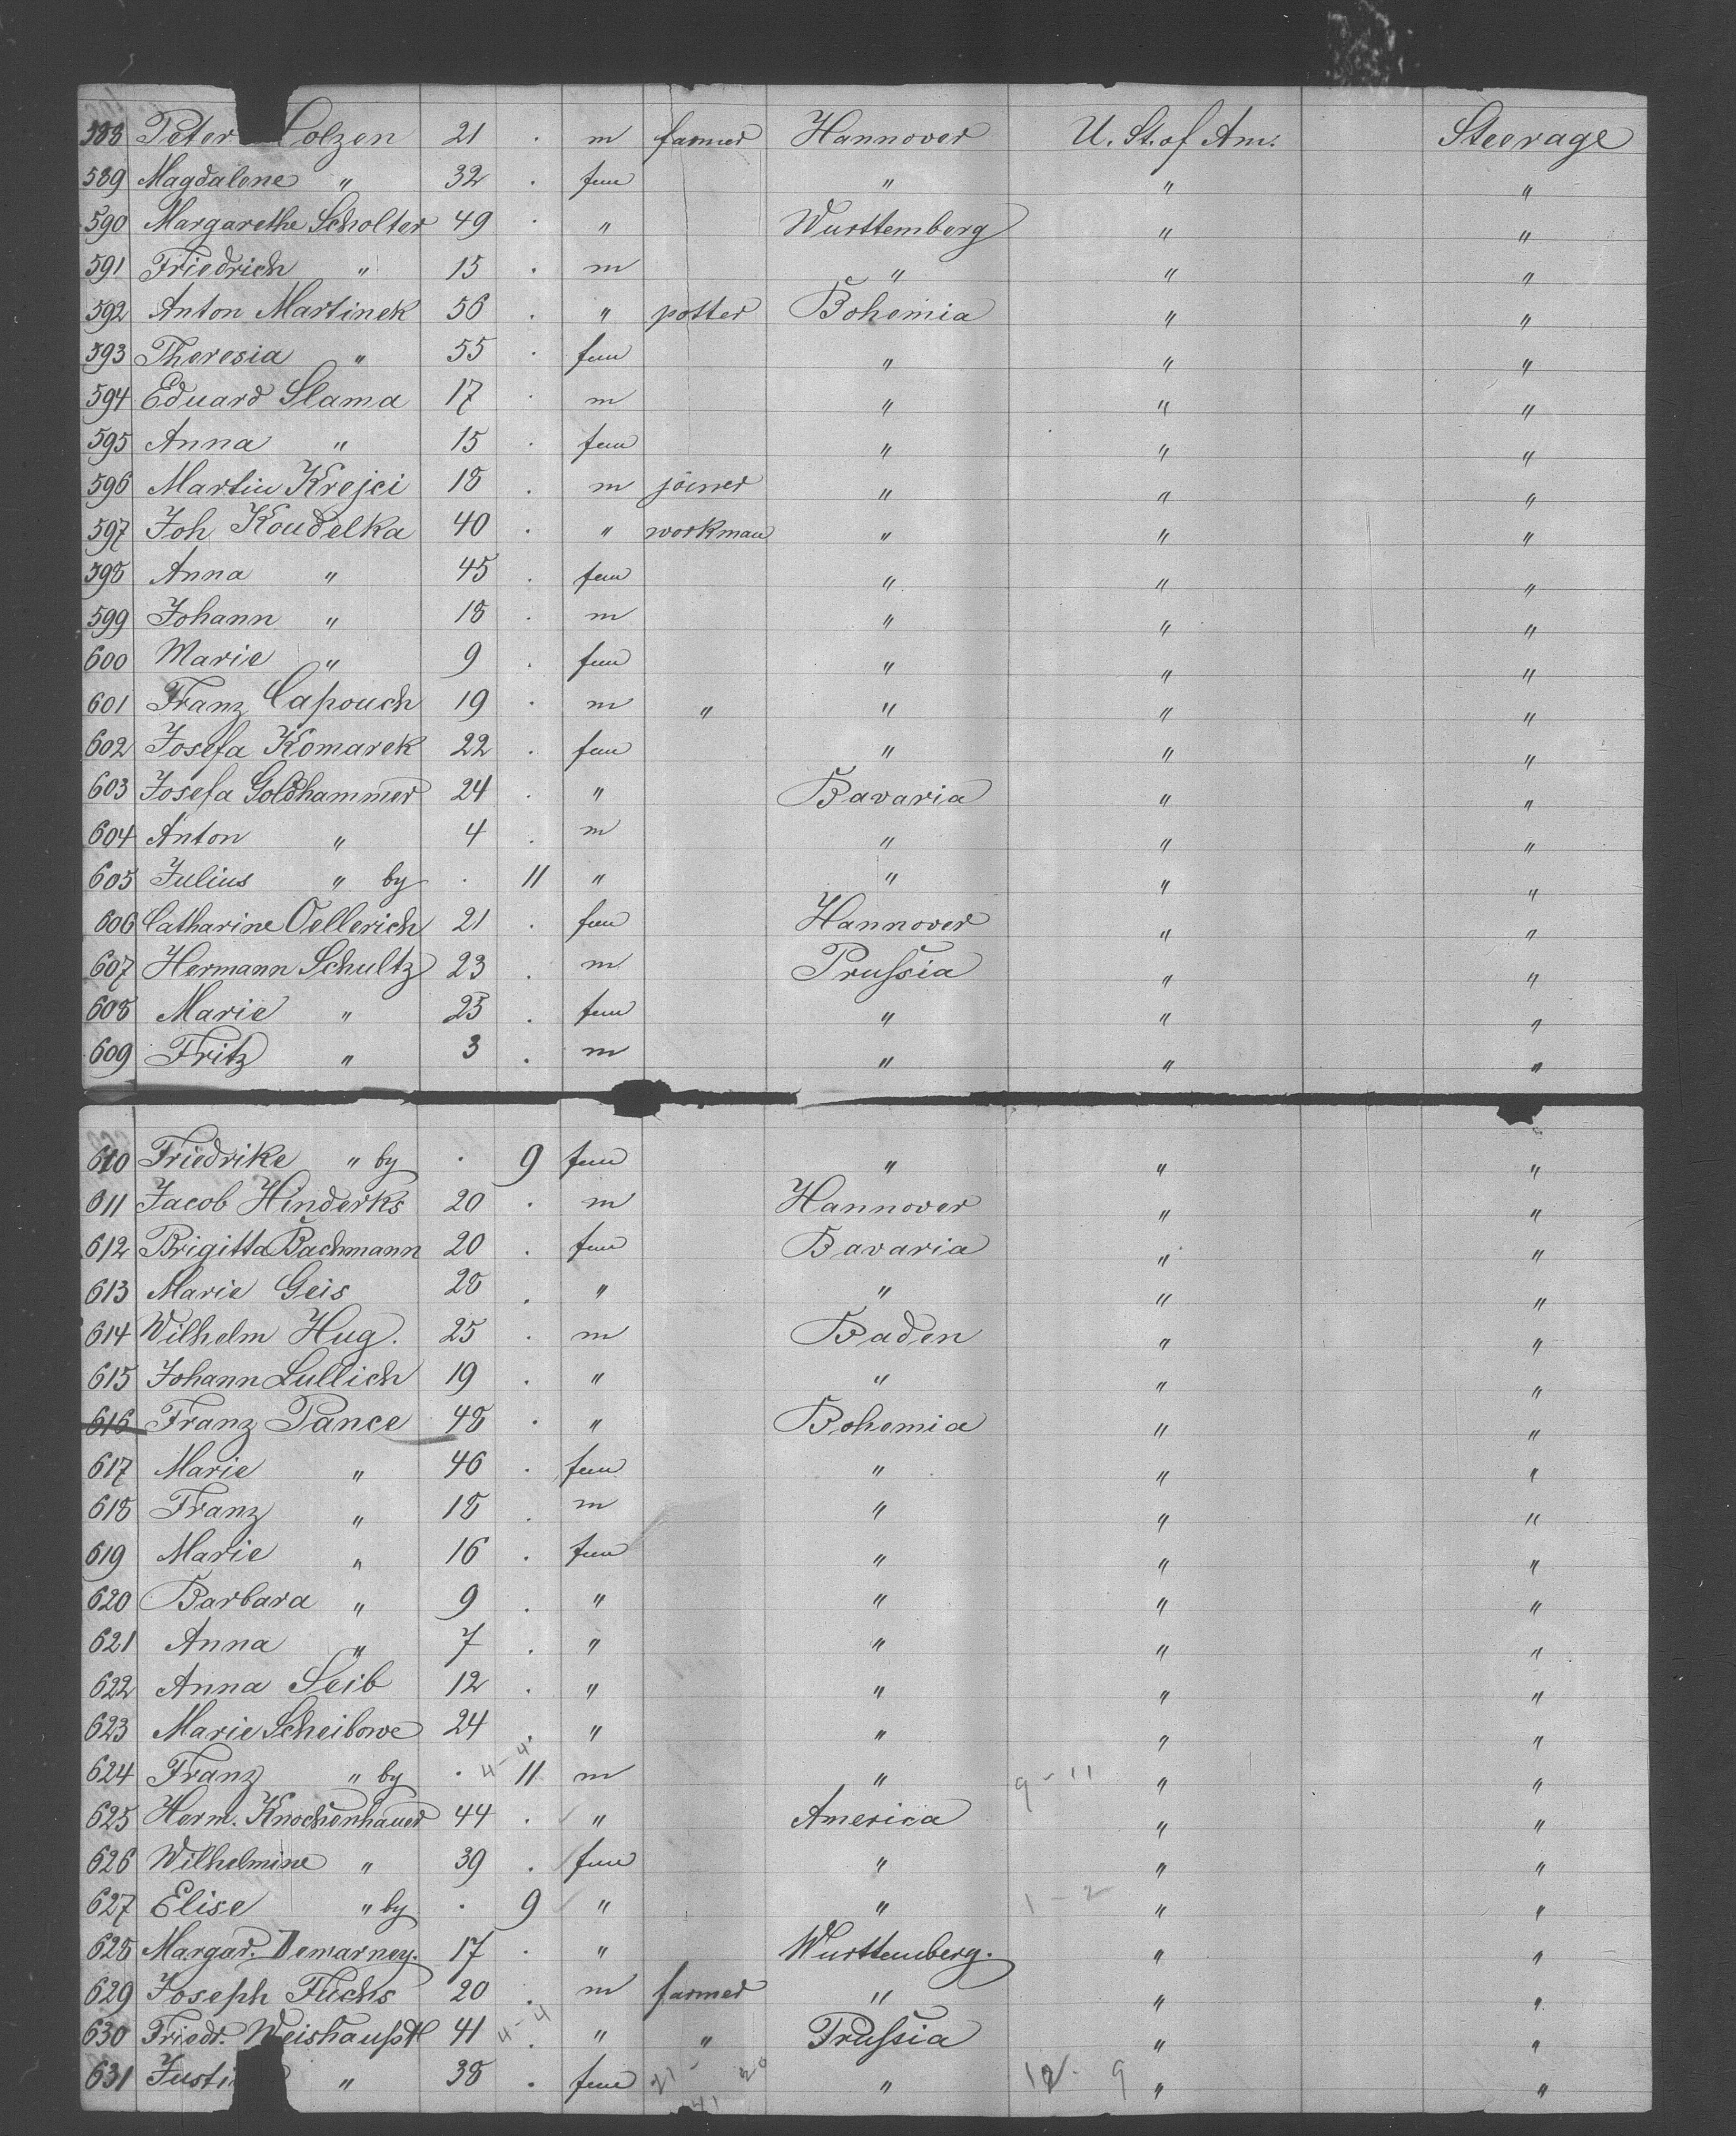 588 Peter Colzen 21 . m farmer Hannover U. St. of Am. Steerage
589 Magdalene " 32 . fem " " "
590 Margarethe Scholter 49 . " Wurttemberg " "
591 Friedrich " 15 . m " " "
592 Anton Martinek 56 . " potter Bohemia " "
593 Theresia " 55 . fem " " "
594 Eduard Slama 17 . m " " "
595 Anna " 15 . fem " " "
596 Martin Krejci 18 . m joiner " " "
597 Joh Koudelka 40 . " workman " " "
598 Anna " 45 . fem " " "
599 Johann " 18 . m " " "
600 Marie " 9 . fem " " "
601 Franz Capouch 19 . m " " " "
602 Josefa Komarek 22 . fem " " "
603 Josefa Goldhammer 24 . " Bavaria " "
604 Anton " 4 . m " " "
605 Julius " by . 11 " " " "
606 Catharine Oellerich 21 . fem Hannover " "
607 Hermann Schultz 23 . m Prussia " "
608 Marie " 23 . fem " " "
609 Fritz " 3 . m " " "
610 Friedrike " by . 9 fem " " "
611 Jacob Hinderks 20 . m Hannover " "
612 Brigitta Bachmann 20 . fem Bavaria " "
613 Marie Geis 28 . " " " "
614 Wilhelm Hug. 25 . m Baden " "
615 Johann Lullich 19 . " " " "
616 Franz Pance 48 . " Bohemia " "
617 Marie " 46 . fem " " "
618 Franz " 18 . m " " "
619 Marie " 16 . fem " " "
620 Barbara " 9 . " " " "
621 Anna " 7 . " " " "
622 Anna Seib 12 . " " " "
623 Marie Scheibowe 24 . " " " "
624 Franz " by . 4-4 11 m " 9-11 " "
625 Herm. Knochenhauer 44 . " America " "
626 Wilhelmine " 39 . fem " " "
627 Elise " by . 9 " " 1-2 " "
628 Margar. Demarney. 17 . " Wurttemberg. " "
629 Joseph Fuchs 20 . m farmer " " "
630 Friedr. Weishaupt 41 4-4 . " " Prussia " "
631 38 . fem " 9 " "